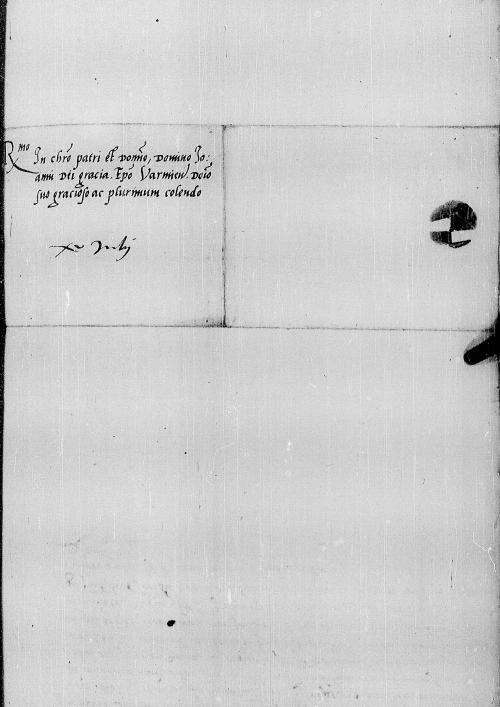 R^mo In chro patri et domo, domino Jo:
anni dei gracia. Epo Varmien. Doio
suo gracioso ac plurimum colendo
xv Julij